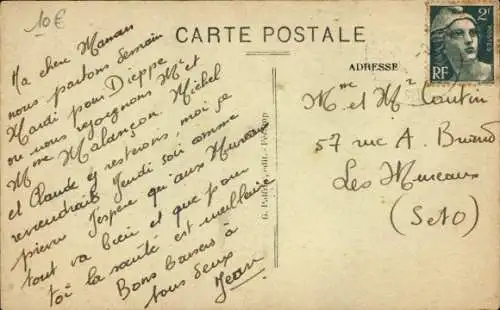 10€
CARTE POSTALE
2F
RF
ADRESSE
Ma chère Maman
nous partons demain
Mardi pour Dieppe
où nous rejoignons Mr et
Mme Malançon. Michel
et Claude y resterons, moi je
reviendrais Jeudi soir comme
prévu. J'espère qu'aux Mureaux
tout va bien et que pour
toi la santé est meilleure
Bons baisers à
tous deux
Jean
Mme et Mr
57 rue A. Briand
Les Mureaux
(S et O)